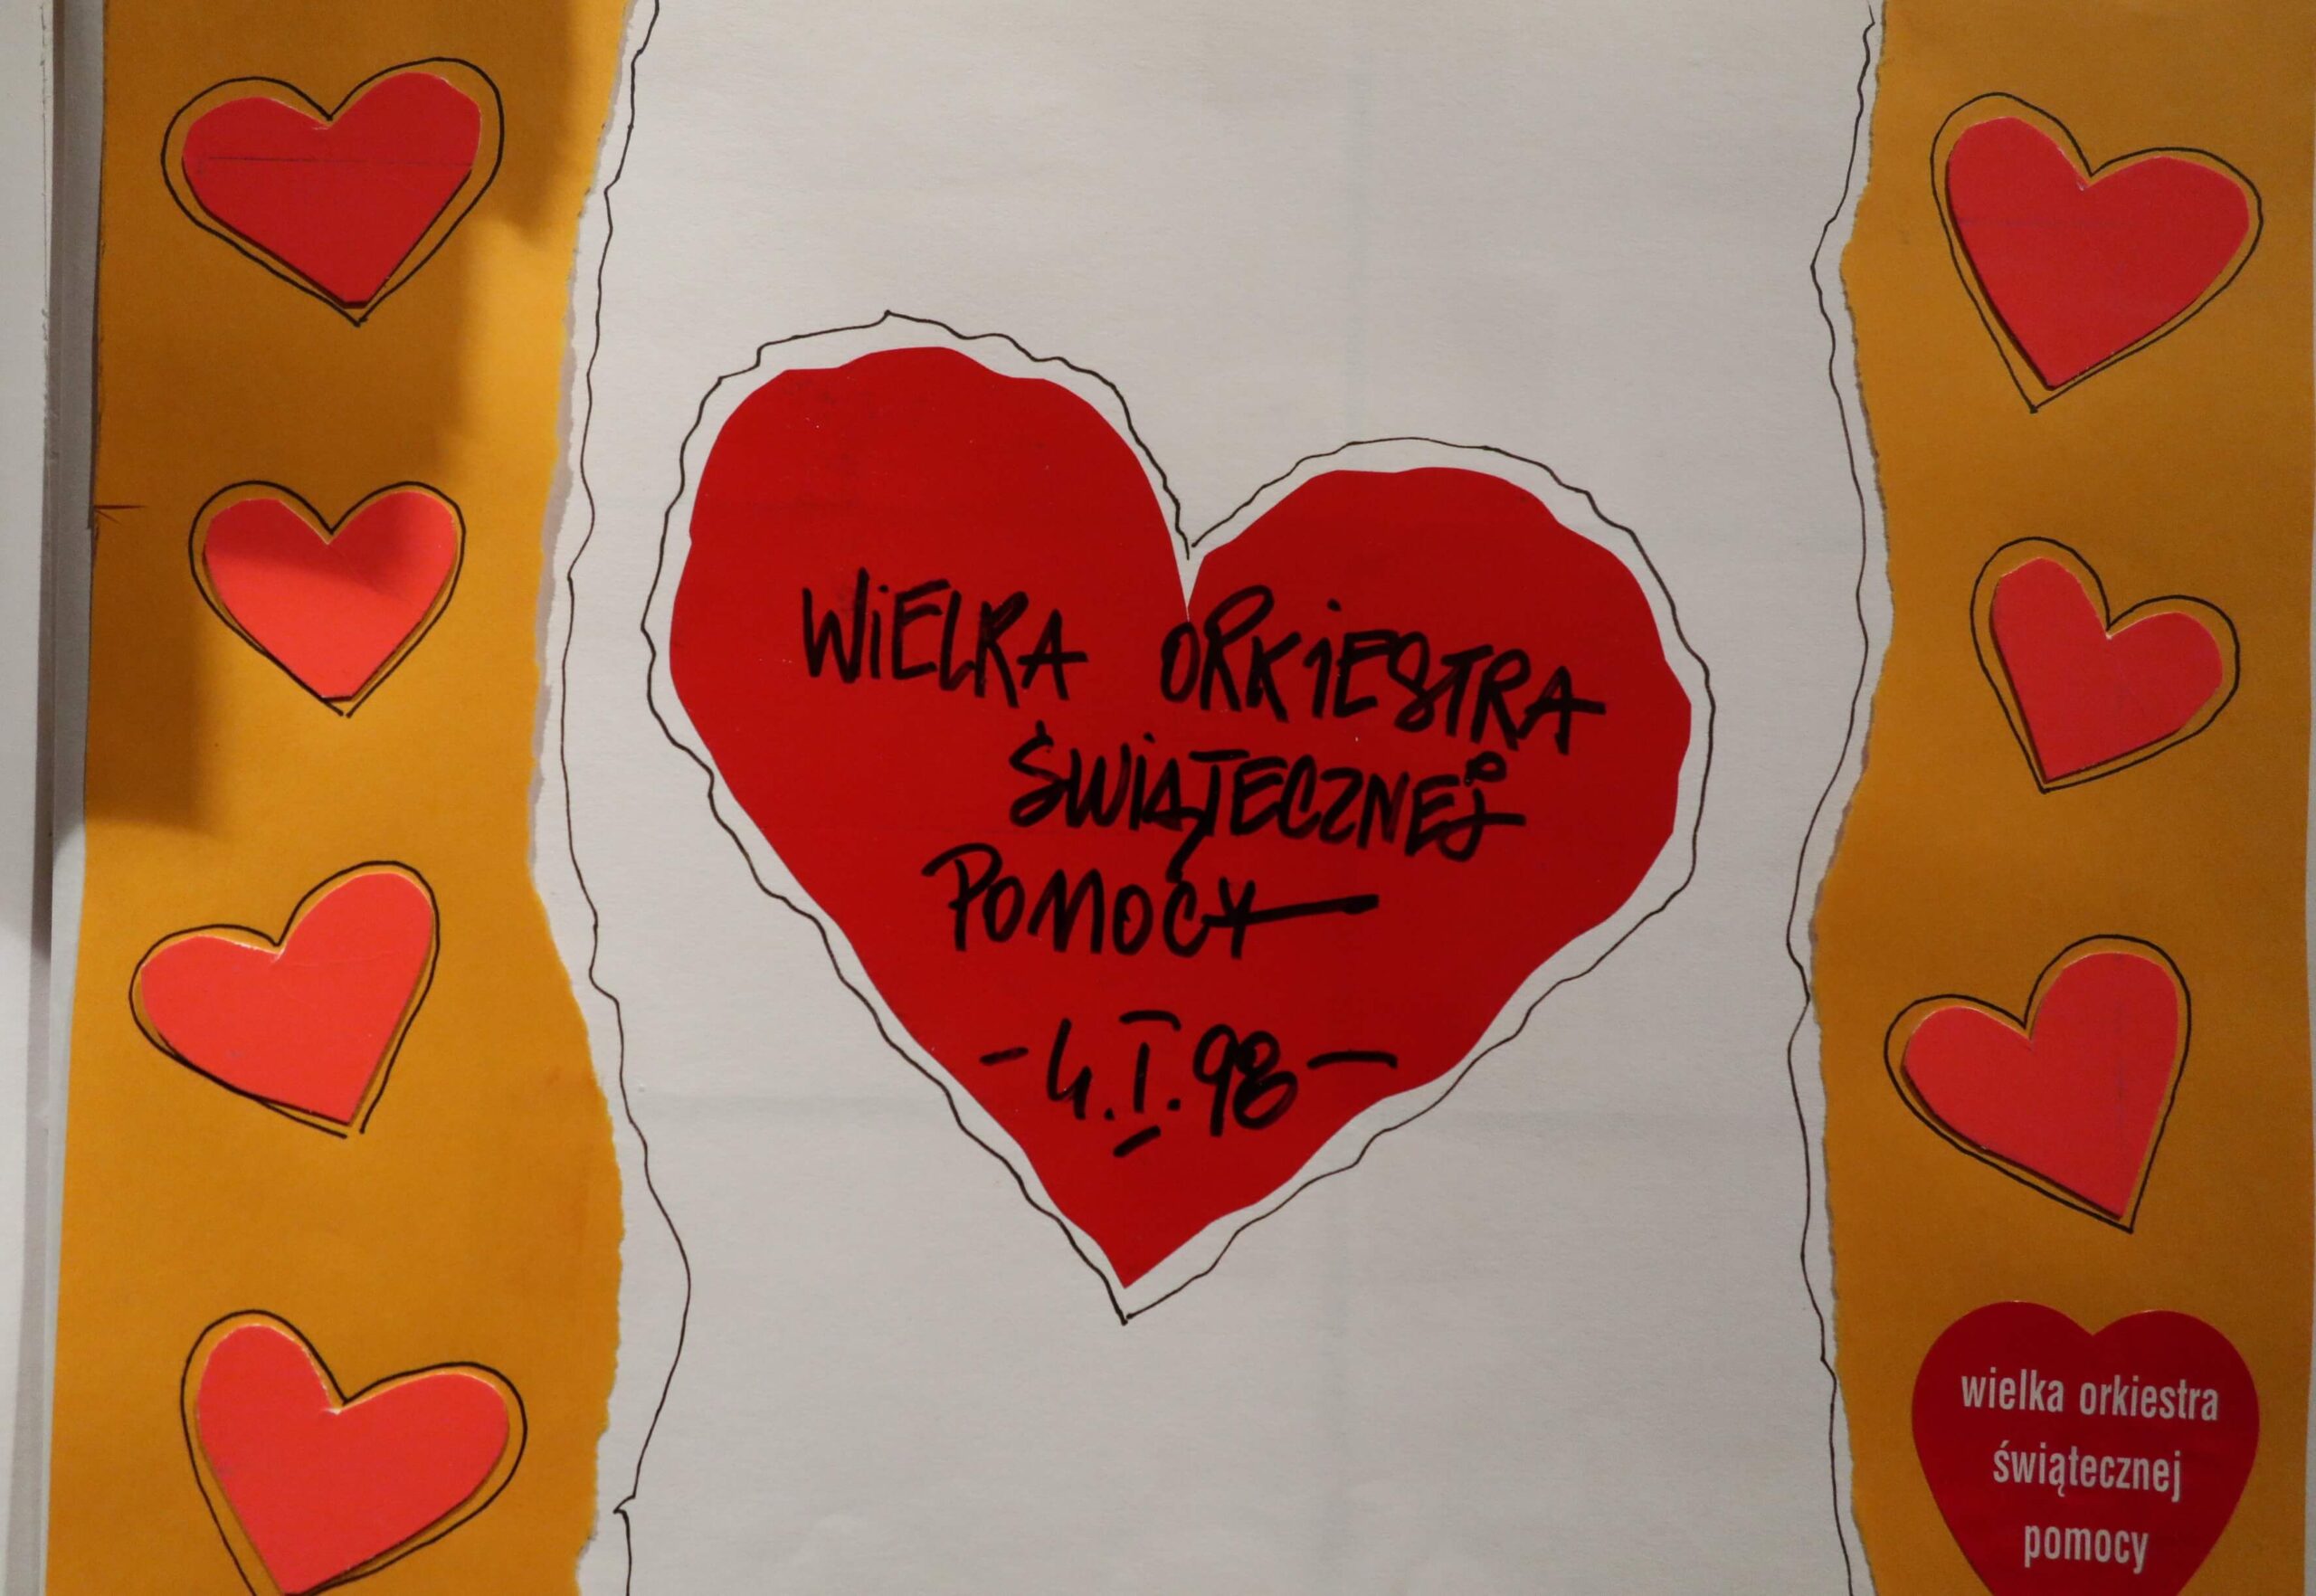 WiELKA ORKIESTRA
ŚWIĄTECZNEJ
POMOCY
-4.I.98-
wielka orkiestra
świątecznej
pomocy